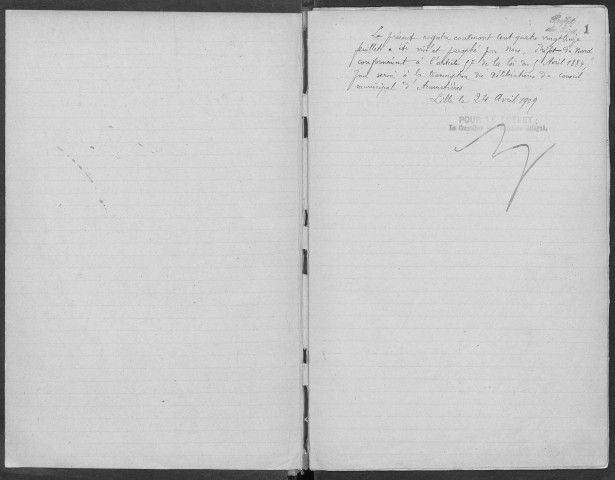 1
Le présent registre contenant cent quatre vingt
feuillets a été visé et paraphé par nous, Préfet du Nord
conformément à l'article 57 de la loi du 5 Avril 1884,
pour servir à la transcription des délibérations du conseil
municipal d'Armentières
Lille le 24 Avril 1919
POUR LE PRÉFET:
Le Conseiller délégué,